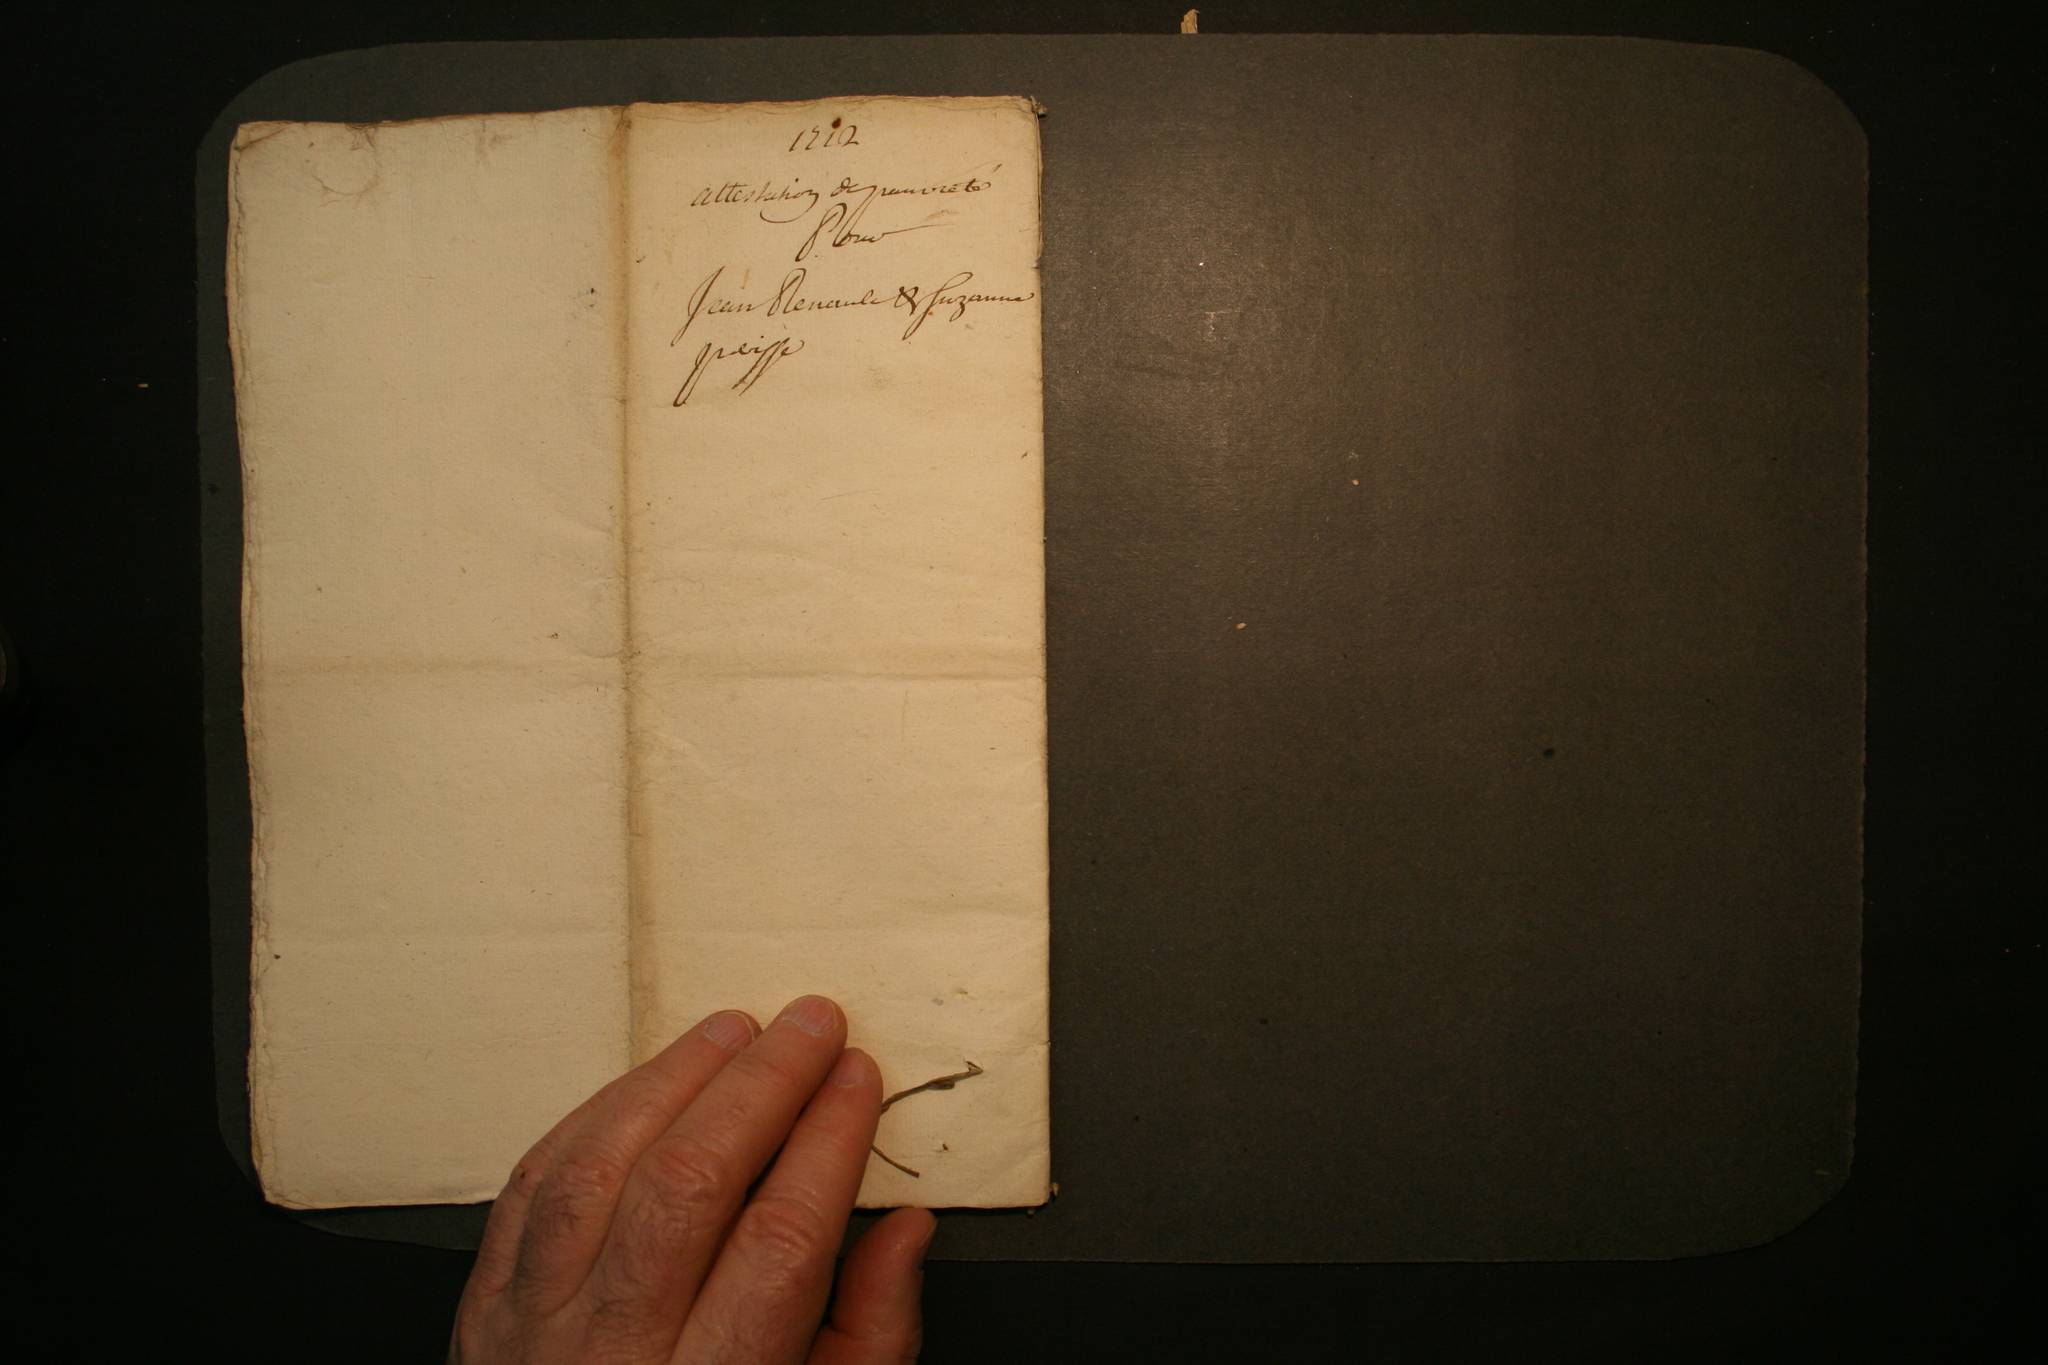 1712
attestation de pauvreté
Pour
Jean Renault & Suzanne
peisse